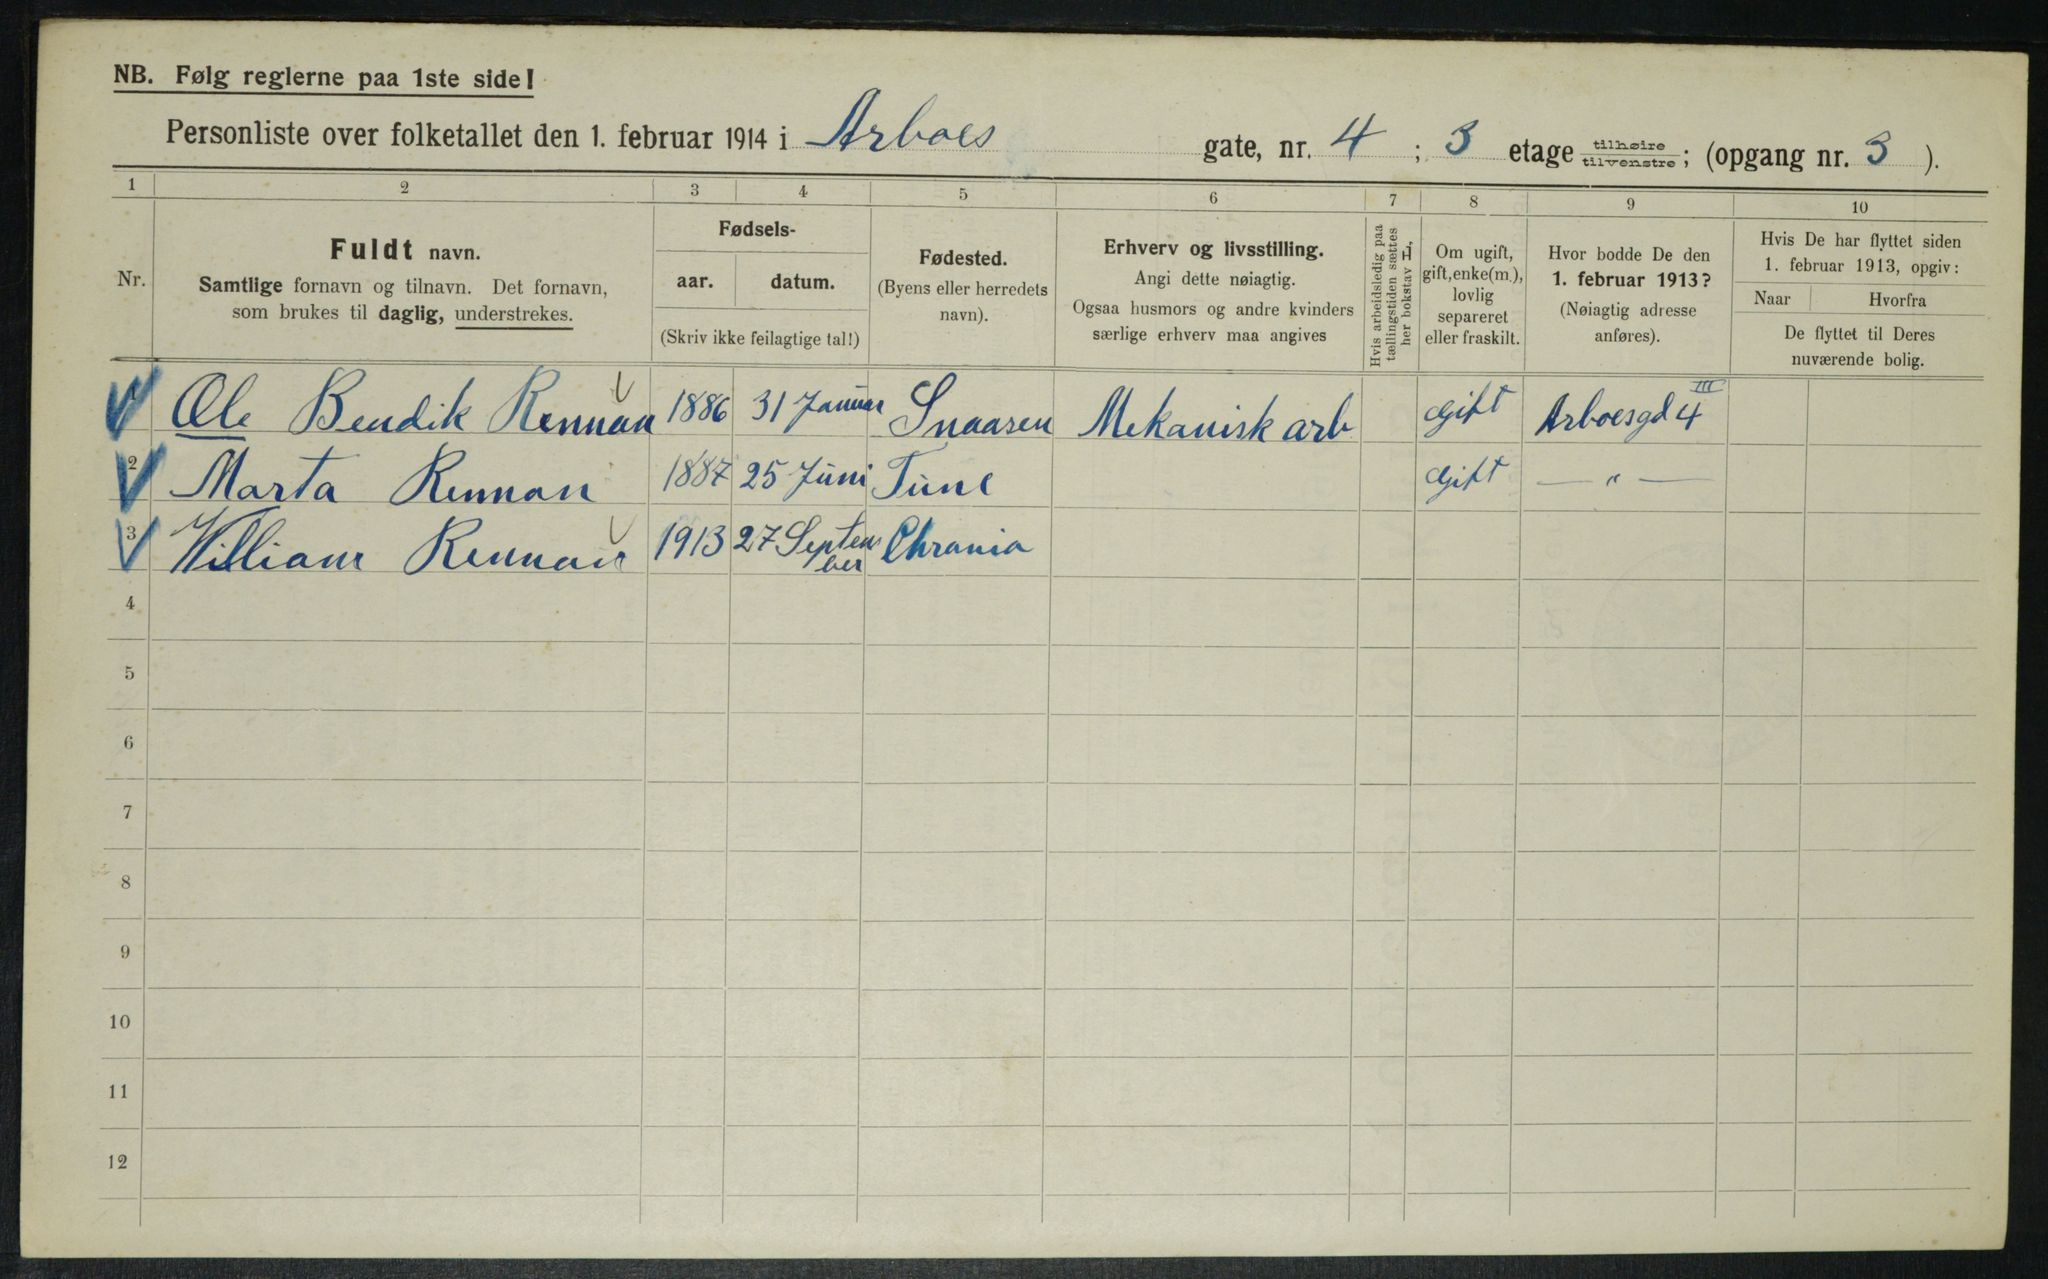 NB. Følg reglerne paa 1ste side!
Personliste over folketallet den 1. februar 1914 i Arboes gate, nr. 4 ; 3 etage tilhøire tilvenstre; (opgang nr. 3 ).
1 2 3 4 5 6 7 8 9 10
Nr.
Fuldt navn.
Samtlige fornavn og tilnavn. Det fornavn,
som brukes til daglig, understrekes.
Fødsels-
aar. datum.
(Skriv ikke feilagtige tal!)
Fødested.
(Byens eller herredets
navn).
Erhverv og livsstilling.
Angi dette nøiagtig.
Ogsaa husmors og andre kvinders
særlige erhverv maa angives
Hvis arbeidsledig paa
tællingstiden sættes
her bokstav L,
Om ugift,
gift, enke(m.),
lovlig
separeret
eller fraskilt.
Hvor bodde De den
1. februar 1913?
(Nøiagtig adresse
anføres).
Hvis De har flyttet siden
1. februar 1913, opgiv:
Naar Hvorfra
De flyttet til Deres
nuværende bolig.
1 Ole Bendik Rennan 1886 31 Januar Snaasen Mekanisk arb gift Arboesgd 4 III
2 Marta Rennan 1887 25 Juni Tune gift — " —
3 William Rennan 1913 27 Septem
ber Chrania
4
5
6
7
8
9
10
11
12